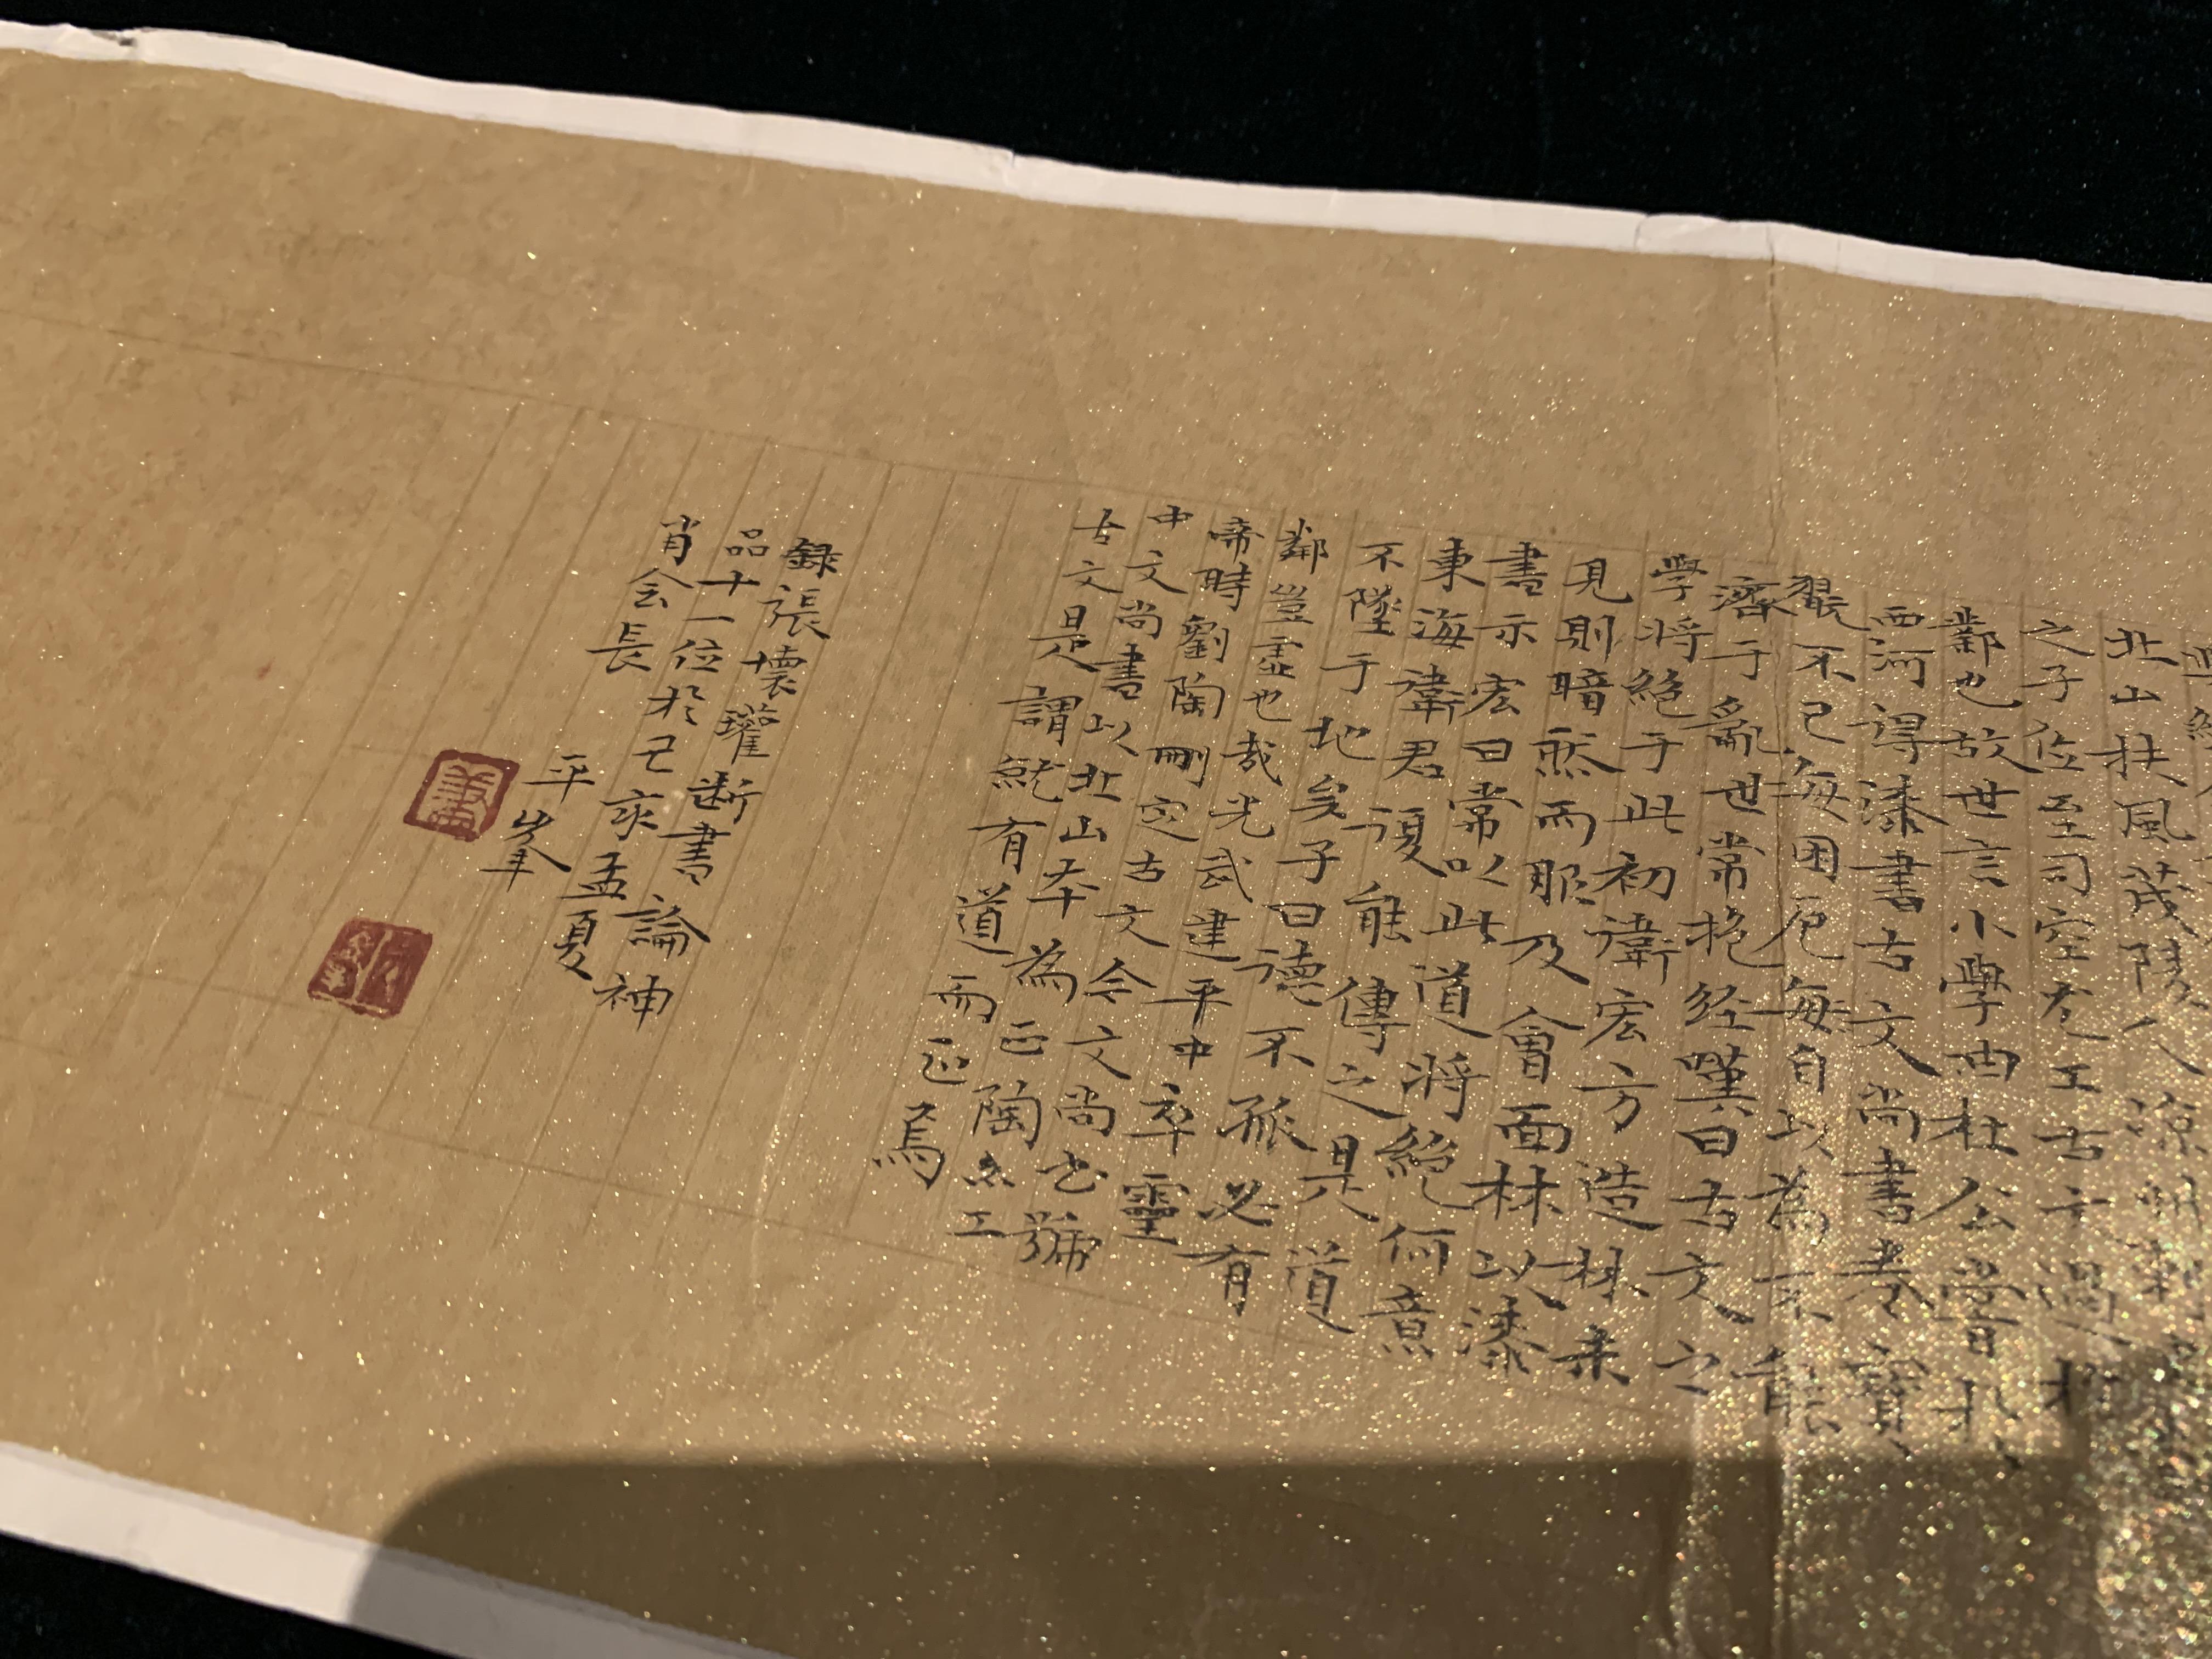 北山扶風茂陵人涼州
之子位至司空尤工古文過於
鄴也故世言小學由杜公嘗於
西河得漆書古文尚書卷寶
翫不已每困厄每自以為不能
濟于亂世常抱经嘆曰古文之
學将絕于此初衛宏方造林未
見則暗然而服及會面林以漆
書示宏曰常以此道将絕何意
東海衛君復能傳之是道
不墜于地矣子曰德不孤必有
鄰豈虛也哉光武建平中卒靈
帝時劉陶刪定古文今文尚书號
中文尚書以北山本為正陶亦工
古文是謂就有道而正焉
録張懷瓘断書論神
品十一位於己亥孟夏
肖会長
平峯